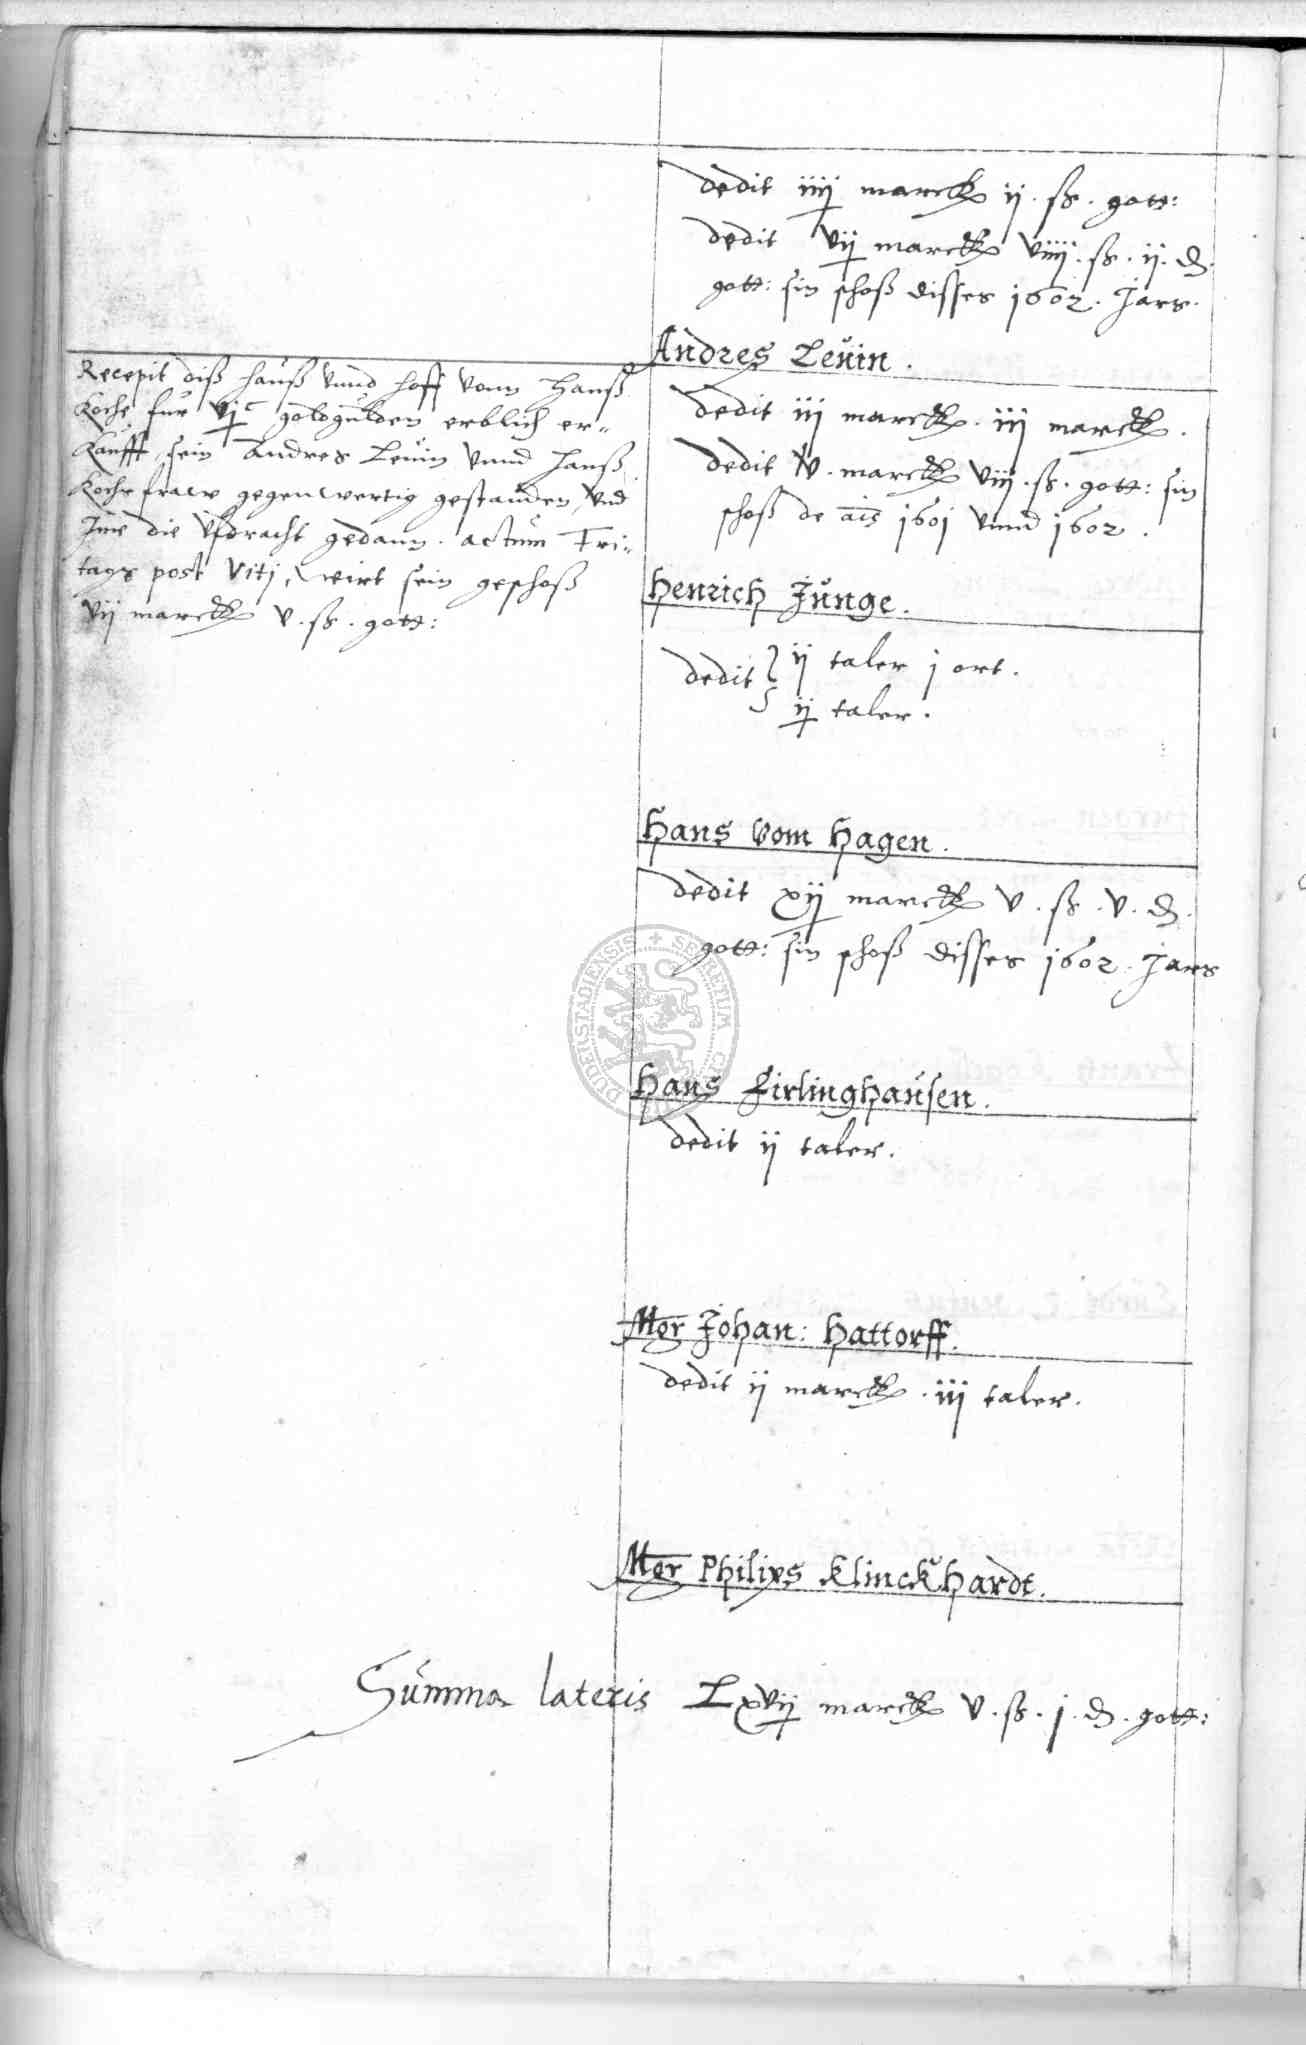 dedit iiij marck ij. ß. gott:
dedit vij marck viiij. ß. ij. d.
gott: sin schoß disses 1602. Jars.
Andres Leuin.
Recepit diß hauß vnnd hoff vonn Hanß
Kochs fur vjc goldgulden erblich er-
kaufft, sein Andres Leuin vnnd Hanß
Kochs fraw gegenwertig gestanden, vnd
Ime die vfdracht gedann. actum Fri-
tags post Viti, wirt sein geschoß
vij marck v. ß. gott:
dedit iij marck. iij marck.
dedit v. marck viij. ß. gott: sin
schoß de ais 1601 vnnd 1602.
Henrich Junge.
dedit ij taler j ort.
ij taler.
Hans vom Hagen.
dedit xij marck v. ß. v. d.
gott: sin schoß disses 1602. Jars
DUDERSTADIENSIS + SECRETUM
Hans Firlinghausen.
dedit ij taler.
Mgr Johan: Hattorff.
dedit ij marck. iij taler.
Mgr Philips Klinckhardt.
Summa lateris Lxvij marck v. ß. j. d. gott: